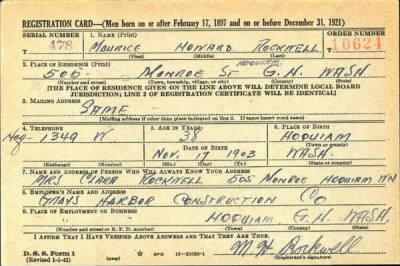 REGISTRATION CARD—(Men born on or after February 17, 1897 and on or before December 31, 1921)
SERIAL NUMBER 1. NAME (Print) ORDER NUMBER
478 MAURICE HOWARD ROCKWELL 10624
(First) (Middle) (Last)
2. PLACE OF RESIDENCE (Print) HOQUIAM
505 MONROE ST G. H. WASH
(Number and street) (Town, township, village, or city) (County) (State)
[THE PLACE OF RESIDENCE GIVEN ON THE LINE ABOVE WILL DETERMINE LOCAL BOARD
JURISDICTION; LINE 2 OF REGISTRATION CERTIFICATE WILL BE IDENTICAL]
3. MAILING ADDRESS
SAME
[Mailing address if other than place indicated on line 2. If same insert word same]
4. TELEPHONE 5. AGE IN YEARS 6. PLACE OF BIRTH
Hoq- 1349 W 38 HOQUIAM
DATE OF BIRTH (Town or county)
NOV. 17 1903 WASH.
(Exchange) (Number) (Mo.) (Day) (Yr.) (State or country)
7. NAME AND ADDRESS OF PERSON WHO WILL ALWAYS KNOW YOUR ADDRESS
MRS CLARA ROCKWELL 505 MONROE HOQUIAM WN
8. EMPLOYER'S NAME AND ADDRESS
GRAYS HARBOR CONSTRUCTION CO
9. PLACE OF EMPLOYMENT OR BUSINESS
HOQUIAM G. H. WASH
(Number and street or R. F. D. number) (Town) (County) (State)
I AFFIRM THAT I HAVE VERIFIED ABOVE ANSWERS AND THAT THEY ARE TRUE.
D. S. S. Form 1
(Revised 1-1-42) M H Rockwell
(Registrant's signature)